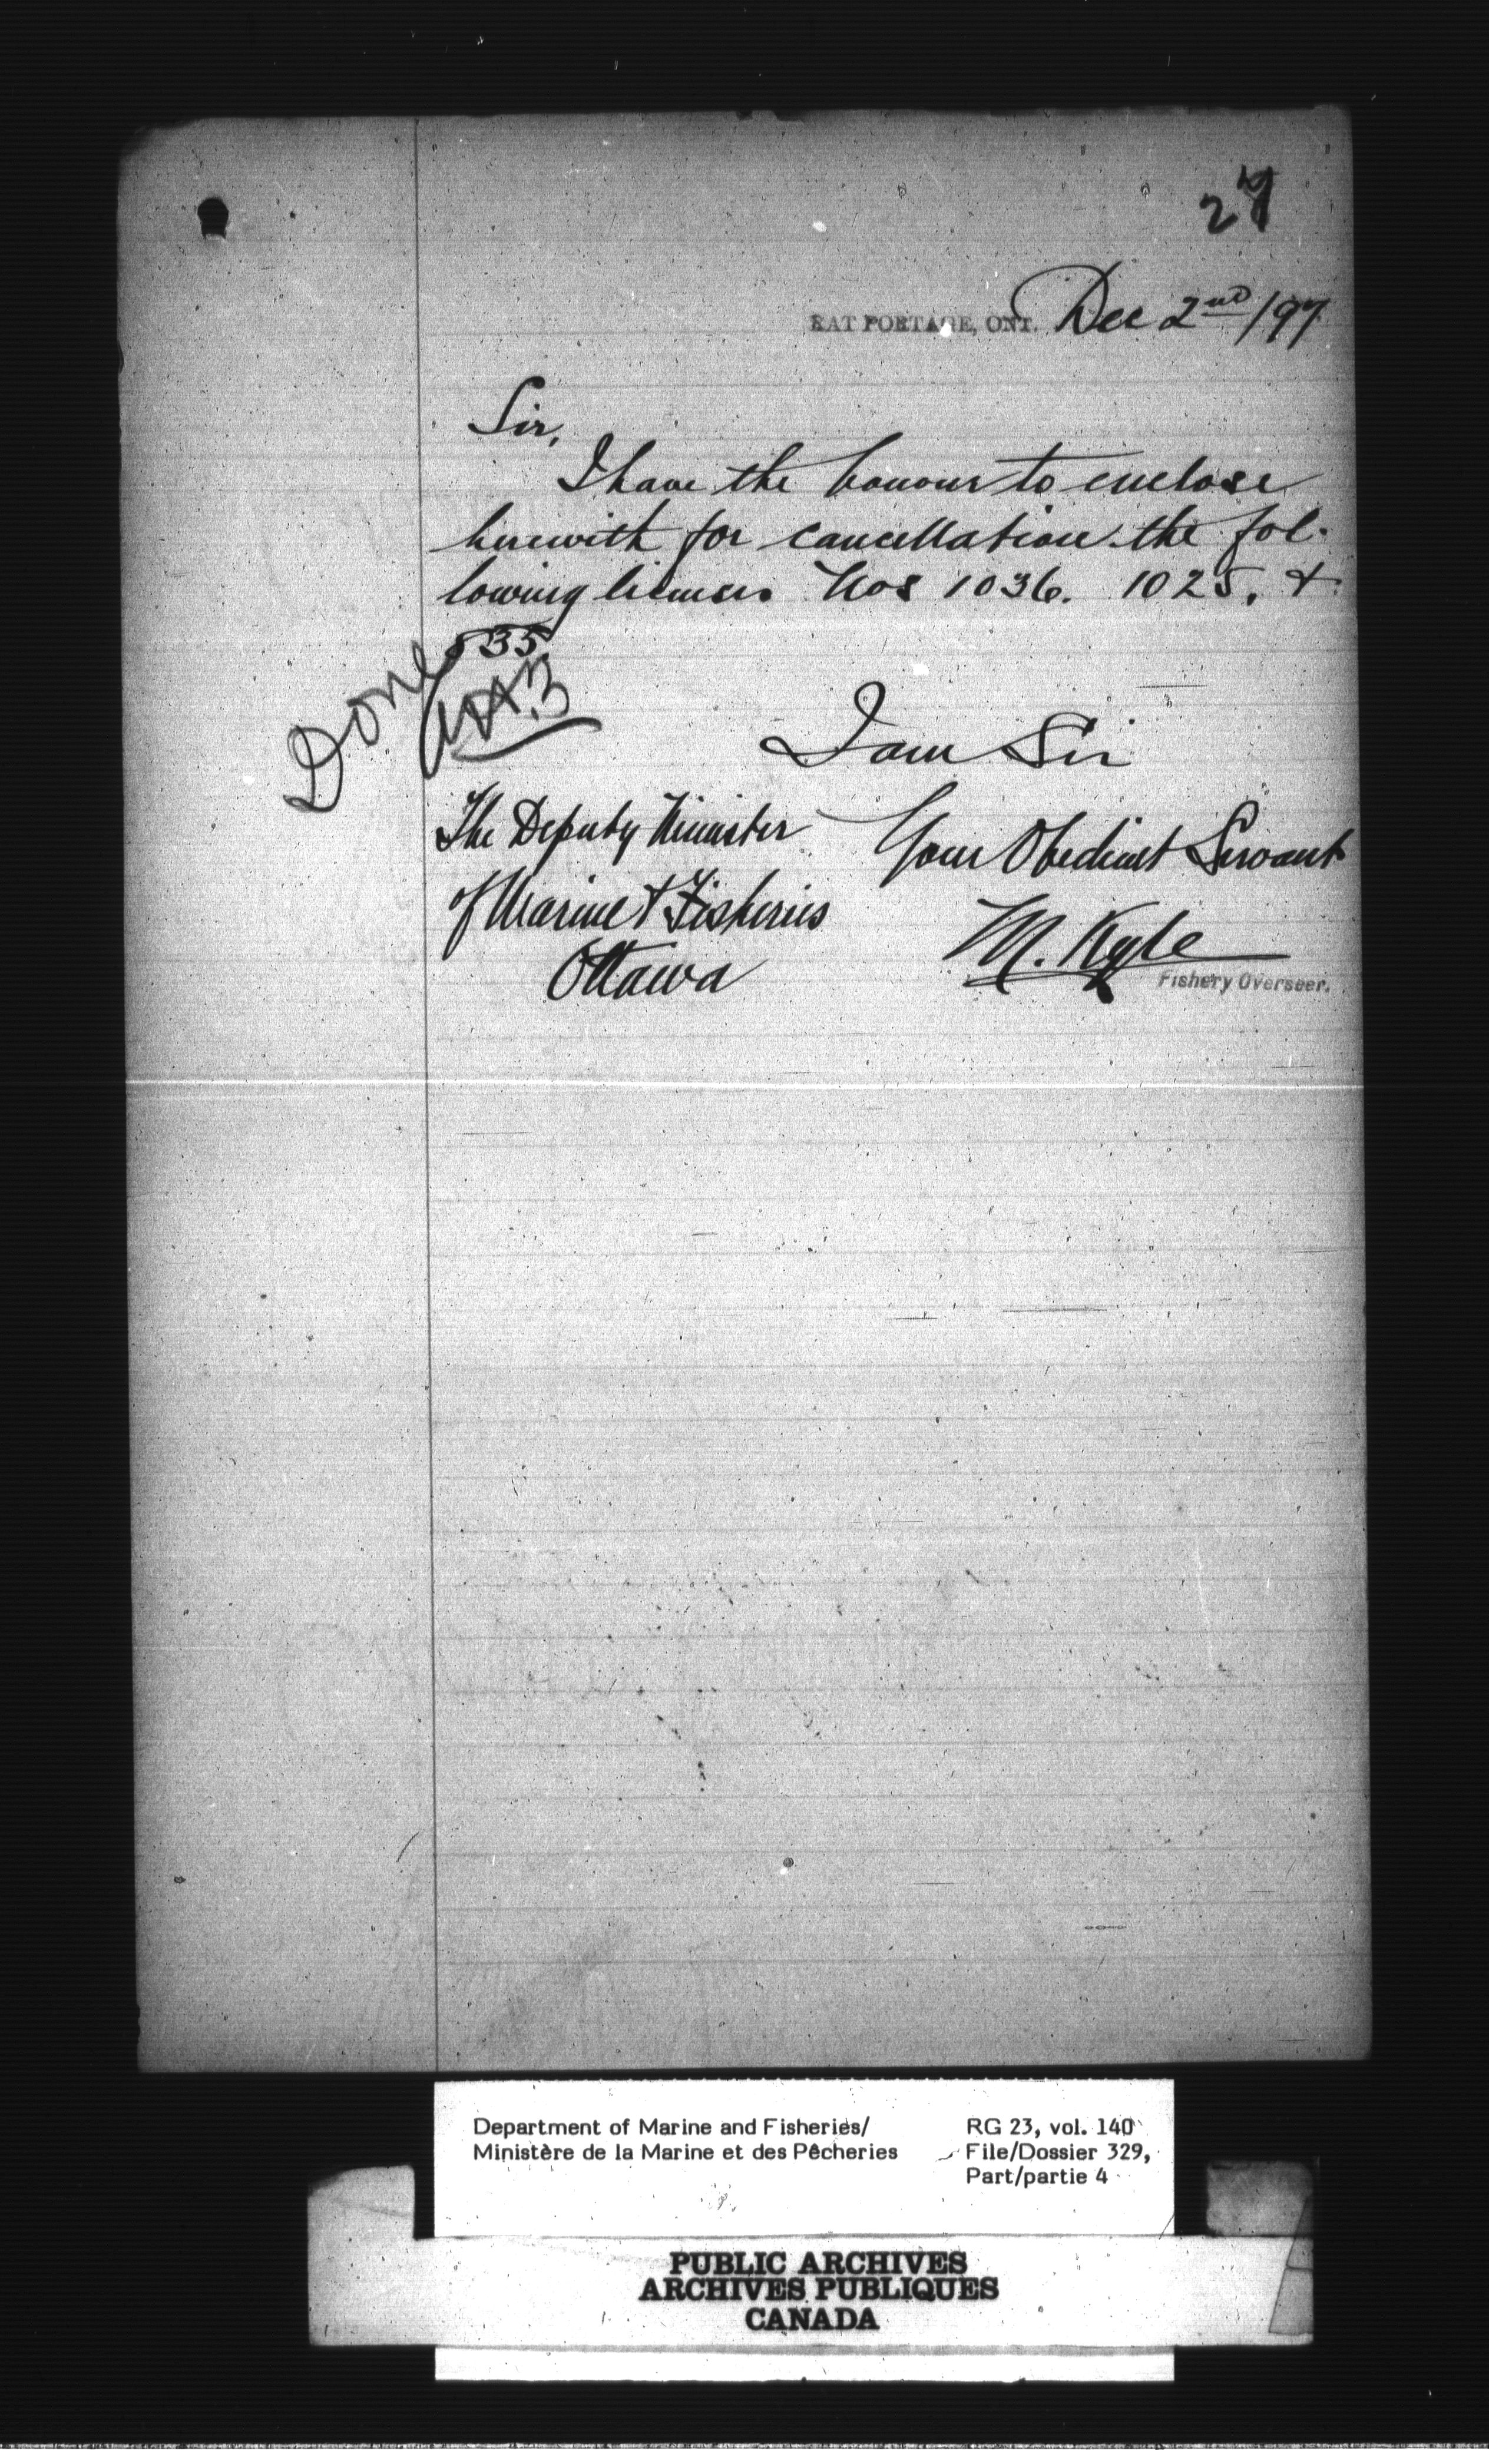 27
RAT PORTAGE, ONT. Dec 2nd /97
Sir,
I have the honour to enclose
herewith for cancellation the fol-
lowing licenses Nos 1036. 1025. &
835.
Done
I am Sir
The Deputy Minister
of Marine & Fisheries
Ottawa
Your Obedient Servant
M. Kyle
Fishery Overseer.
Department of Marine and Fisheries/
Ministère de la Marine et des Pêcheries
RG 23, vol. 140
File/Dossier 329,
Part/partie 4
PUBLIC ARCHIVES
ARCHIVES PUBLIQUES
CANADA